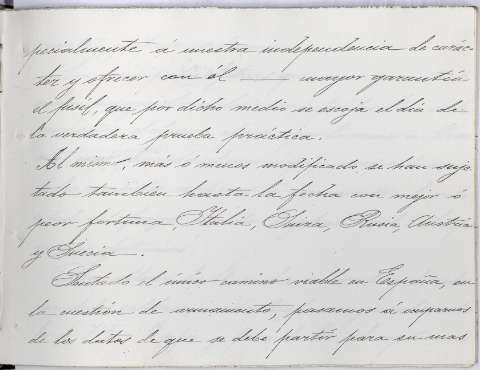 pecialmente á nuestra independencia de carác-
ter y ofrecer con él —— mayor garantía
el fusil, que por dicho medio se escoja el dia de
la verdadera prueba práctica.
Al mismo, más ó menos modificado, se han suje-
tado también hasta la fecha con mejor ó
peor fortuna, Italia, Suiza, Rusia, Austria
y Suecia.
Sentado el único camino viable en España, en
la cuestión de armamento, pasamos á ocuparnos
de los datos de que se debe partir para su mas